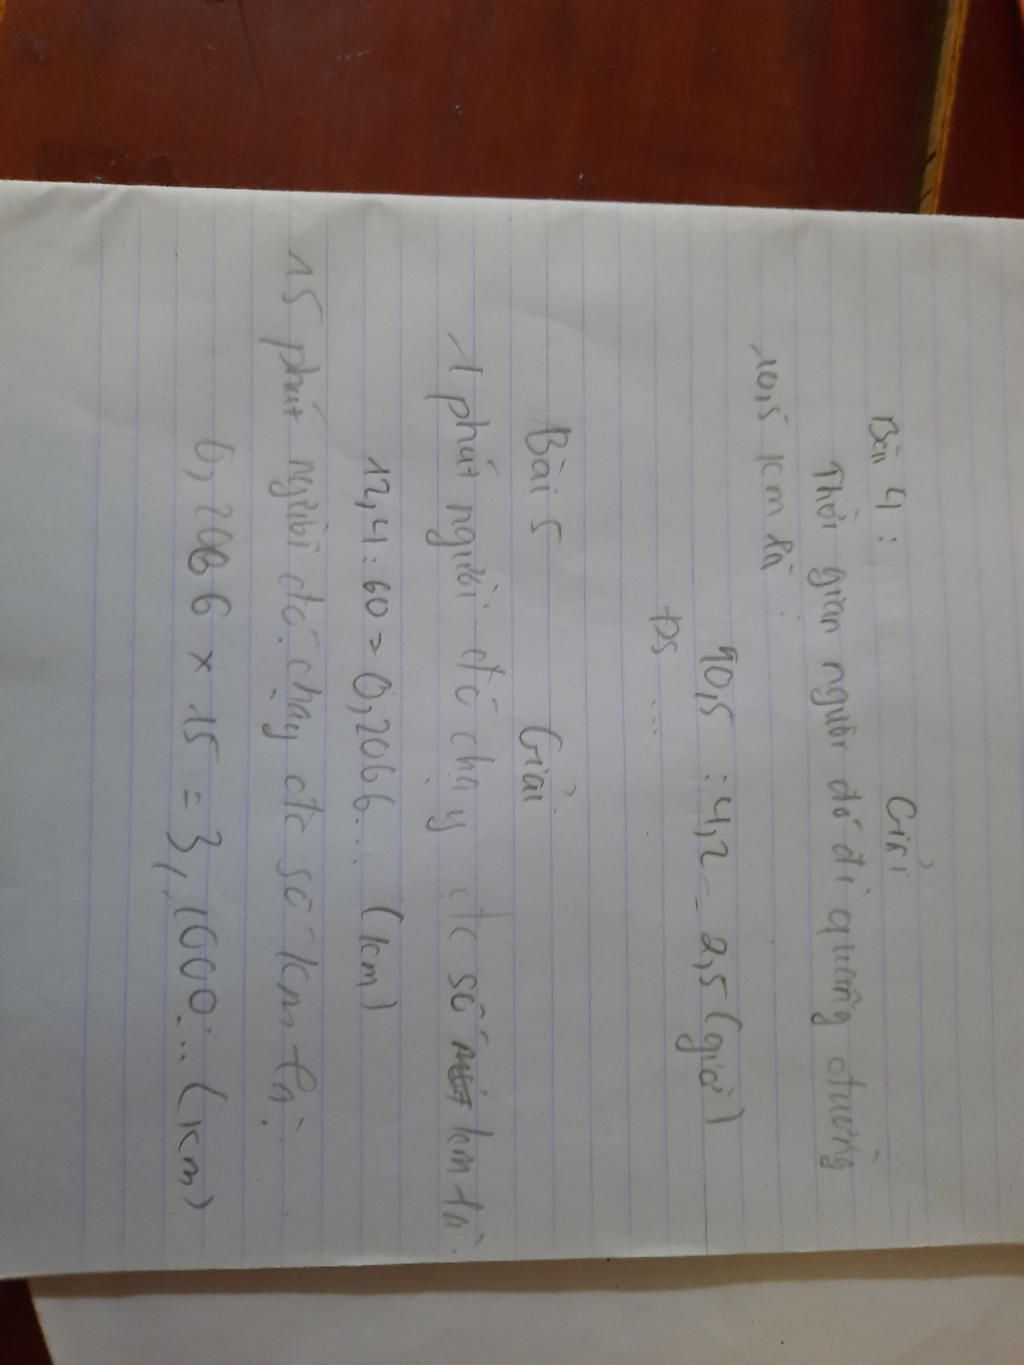 Bài 4 : Giải
Thời gian người đó đi quãng đường
10,5 km là :
10,5 : 4,2 = 2,5 (giờ)
ĐS ...
Bài 5 Giải
1 phút người đó chạy đc số km là.
12,4 : 60 = 0,2066... (km)
15 phút người đó chạy đc số km là:
0,2066 × 15 = 3,1000... (km)